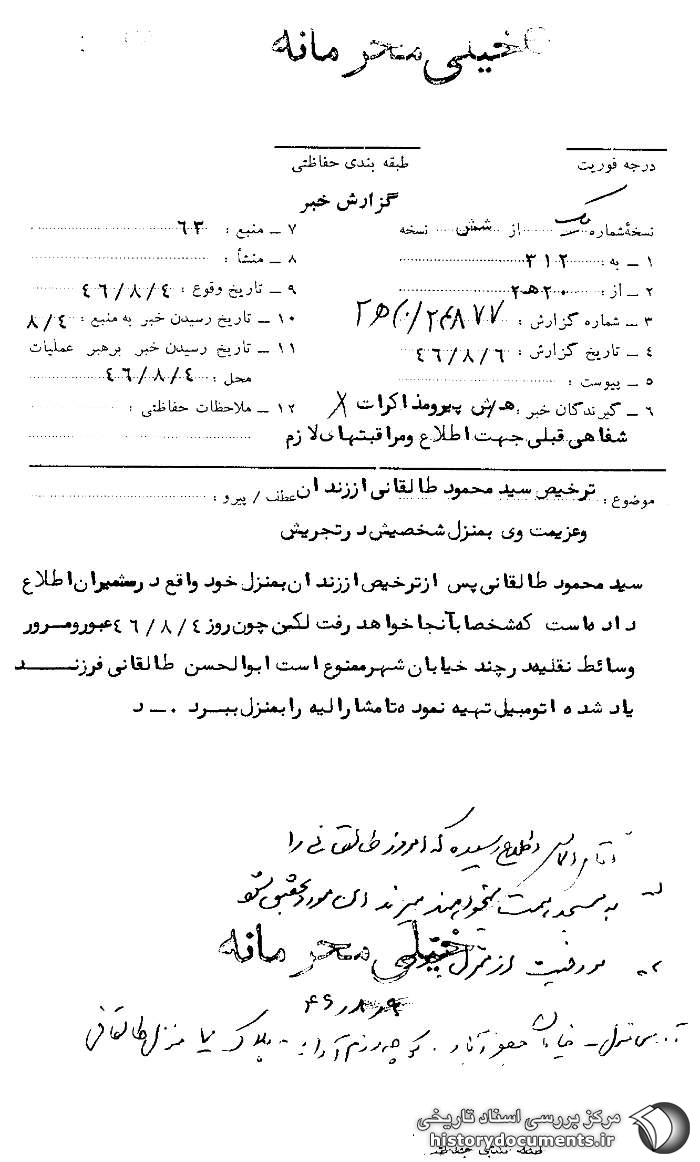 خیلی محرمانه
درجه فوریت
طبقه بندی حفاظتی
گزارش خبر
نسخهٔ شماره یک از شش نسخه
۱ ـ به : ۳۱۲
۲ ـ از : ۲۰ هـ ۲
۳ ـ شماره گزارش :
۴ ـ تاریخ گزارش : ۴۶/۸/۶
۵ ـ پیوست :
۶ ـ گیرندگان خبر :
۷ ـ منبع : ۶۳
۸ ـ منشأ :
۹ ـ تاریخ وقوع : ۴۶/۸/۴
۱۰ ـ تاریخ رسیدن خبر به منبع : ۸/۴
۱۱ ـ تاریخ رسیدن خبر برهبر عملیات
محل : ۴۶/۸/۴
۱۲ ـ ملاحظات حفاظتی :
پیرو مذاکرات
شفاهی قبلی جهت اطلاع ومراقبتهای لازم
موضوع : ترخیص سید محمود طالقانی اززندان
عطف / پیرو :
وعزیمت وی بمنزل شخصیش درتجریش
سید محمود طالقانی پس ازترخیص اززندان بمنزل خود واقع درشمیران اطلاع
داده است که شخصا بآنجا خواهد رفت لکن چون روز ۴۶/۸/۴ عبورومرور
وسائط نقلیه در چند خیابان شهر ممنوع است ابوالحسن طالقانی فرزند
یاد شده اتومبیل تهیه نموده تا مشارالیه را بمنزل ببرد ۰ـ د
اطلاع رسیده که امروز طالقانی را
به مسجد میبرند این مورد تحقیق شود
از منزل
خیلی محرمانه
۴۶/۸/۹
منزل طالقانی
مرکز بررسی اسناد تاریخی
historydocuments.ir
طبقه بندی حفاظتی